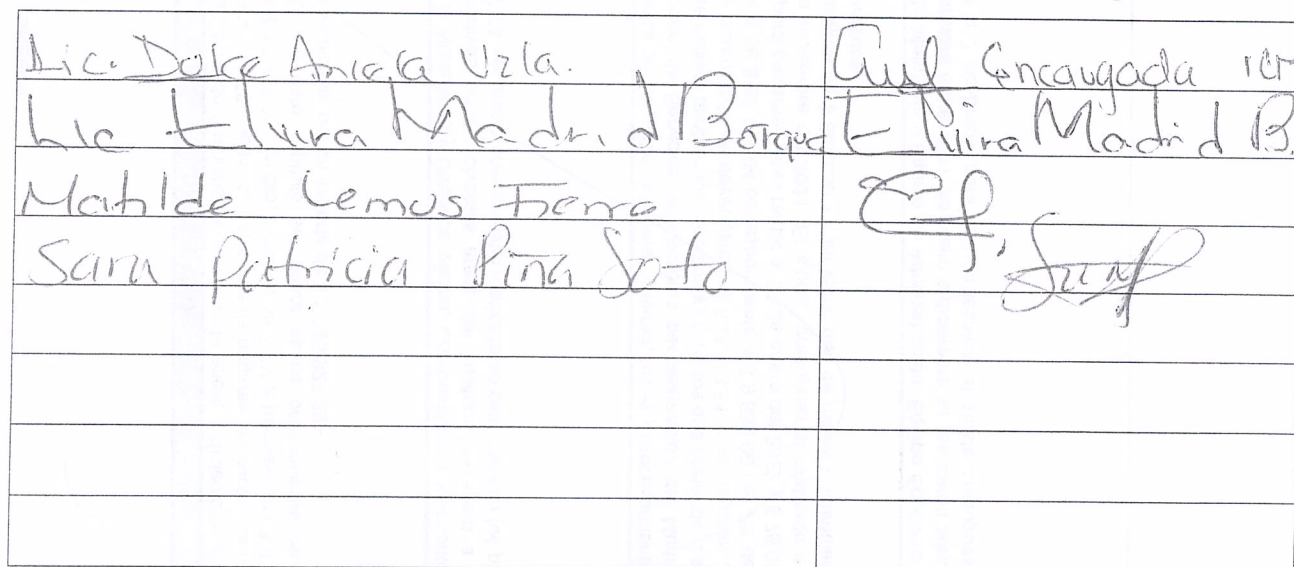 Lic. Dolce Angela Uzla. Encargada
Lic Elvira Madrid Borque Elvira Madrid B.
Matilde Lemus Fierro
Sara Patricia Piña Soto